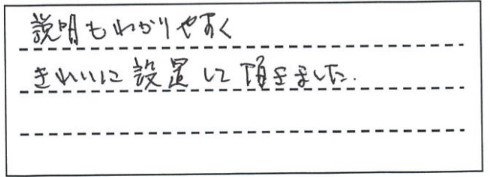 説明もわかりやすく
きれいに設置して頂きました.